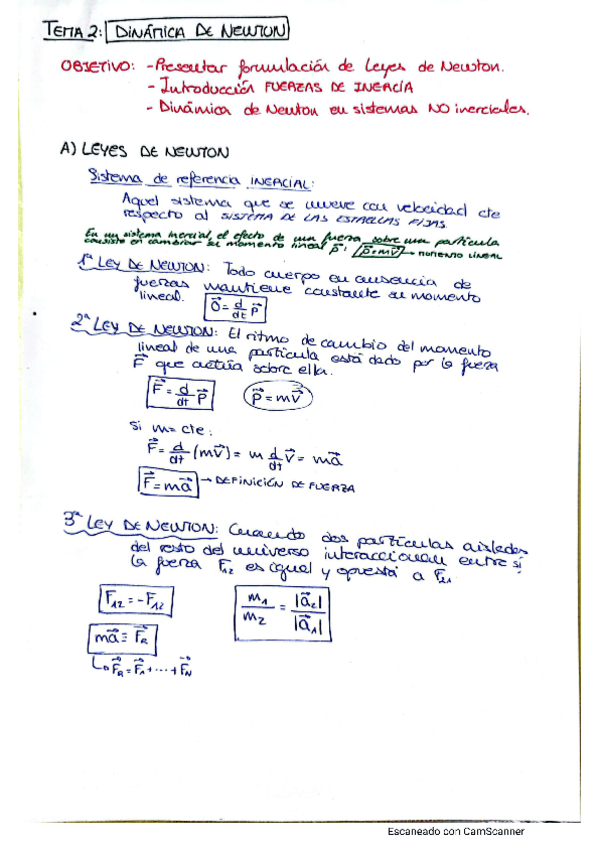 TEMA 2: DINÁMICA DE NEWTON
OBJETIVO: - Presentar formulación de Leyes de Newton.
- Introducción FUERZAS DE INERCIA
- Dinámica de Newton en sistemas NO inerciales.
A) LEYES DE NEWTON
Sistema de referencia INERCIAL:
Aquel sistema que se mueve con velocidad cte
respecto al SISTEMA DE LAS ESTRELLAS FIJAS.
En un sistema inercial, el efecto de una fuerza sobre una partícula
consiste en cambiar su momento lineal p⃗: p⃗=mv⃗ → MOMENTO LINEAL
1ª LEY DE NEWTON: Todo cuerpo en ausencia de
fuerzas mantiene constante su momento
lineal. 0⃗ = d/dt p⃗
2ª LEY DE NEWTON: El ritmo de cambio del momento
lineal de una partícula está dado por la fuerza
F⃗ que actúa sobre ella.
F⃗ = d/dt p⃗ p⃗ = mv⃗
si m = cte:
F⃗ = d/dt (mv⃗) = m d/dt v⃗ = ma⃗
F⃗ = ma⃗ → DEFINICIÓN DE FUERZA
3ª LEY DE NEWTON: Cuando dos partículas aisladas
del resto del universo interaccionan entre sí,
la fuerza F₁₂ es igual y opuesta a F₂₁
F₁₂ = -F₁₂ m₁/m₂ = |a⃗₂|/|a⃗₁|
ma⃗ = F⃗R
↳ F⃗R = F⃗₁ + ... + F⃗N
Escaneado con CamScanner